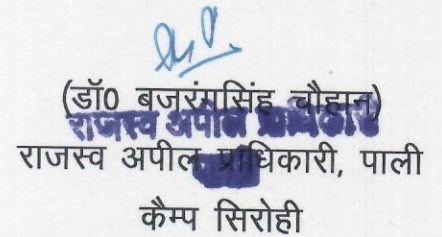 (डॉ0 बजरंगसिंह चौहान)
राजस्व अपील प्राधिकारी
राजस्व अपील प्राधिकारी, पाली
कैम्प सिरोही